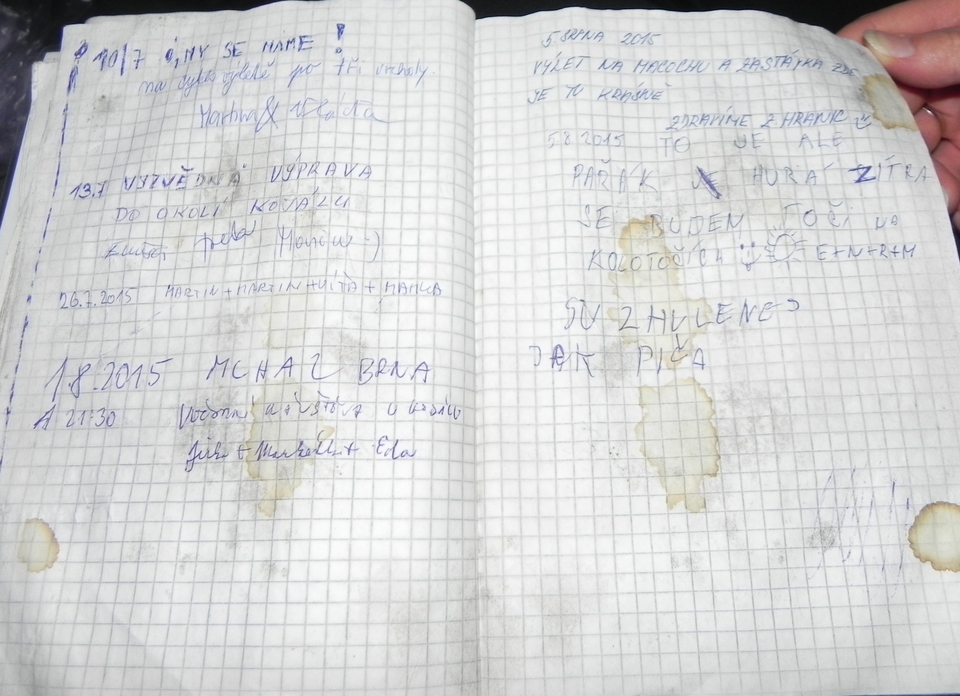 10/7 Ó, MY SE MÁME !
na cyklovýletě po tři vrcholy.
Martina & Vlaďka
13.7 VYZVĚDNÁ VÝPRAVA
DO OKOLÍ KOVÁLU
26.7.2015 MARTIN+MARTIN+VÍŤA+MAMKA
1.8.2015 MCHA Z BRNA
21:30 Večerní návštěva u
Jirka + Markéta + Eda
5 SRPNA 2015
VÝLET NA MACOCHU A ZASTÁVKA ZDE
JE TU KRÁSNĚ
ZDRAVÍME Z HRANIC
5.8.2015 TO JE ALE
PAŘÁK HURÁ ZÍTRA
SE BUDEN TOČI NA
KOLOTOČÍCH E+N+R+M
SU ZHULENEJ
JAK PIČA